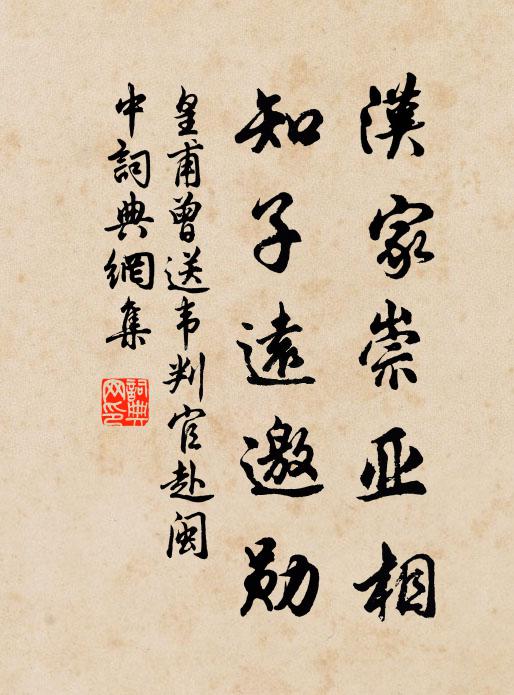 漢家崇亚相
知子遠邀勋
皇甫曾送韦判官赴闽
中詞典網集
詞典
网印